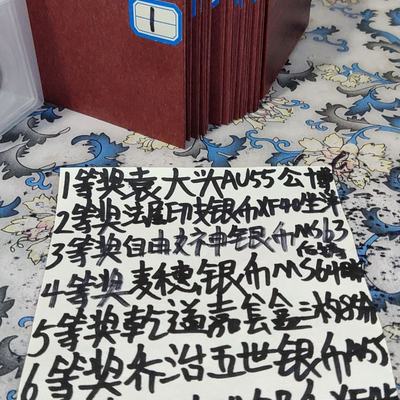 1
1等奖袁大头AU55公博
2等奖法属印支银币XF40
3等奖自由女神银币MS63
4等奖麦穗银币MS64
5等奖乾道嘉
6等奖乔治五世银币